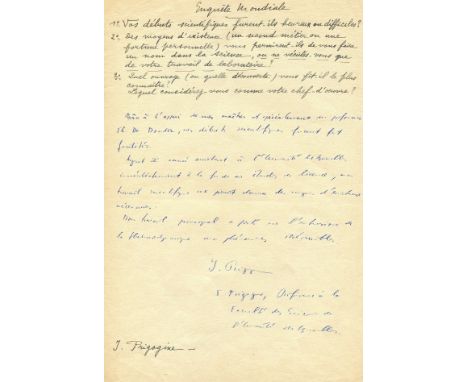 Enquête Mondiale
1º Vos débuts scientifiques furent-ils heureux ou difficiles?
2º Des moyens d'existence (un second métier ou une
fortune personnelle) vous permirent-ils de vous faire
un nom dans la science, ou ne vécûtes vous que
de votre travail de laboratoire?
3º Quel ouvrage (ou quelle découverte) vous fit il le plus
connaître?
Lequel considérez vous comme votre chef d'œuvre?
Grâce à l'appui de mes maîtres et spécialement du professeur
Th. De Donder, mes débuts scientifiques furent fort
facilités.
Ayant été nommé assistant à l'Université de Bruxelles
immédiatement à la fin de mes études de licence, mon
travail scientifique me donna
Mon travail principal a porté sur l'extension de
la thermodynamique aux phénomènes irréversibles
I. Prigo
I Prigogine, Professeur à la
Faculté des Sciences de
l'Université de Bruxelles
I. Prigogine